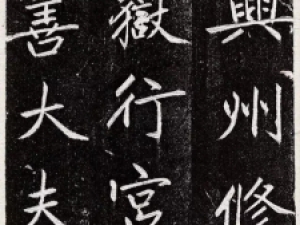 興州修
嶽行宮
善大夫